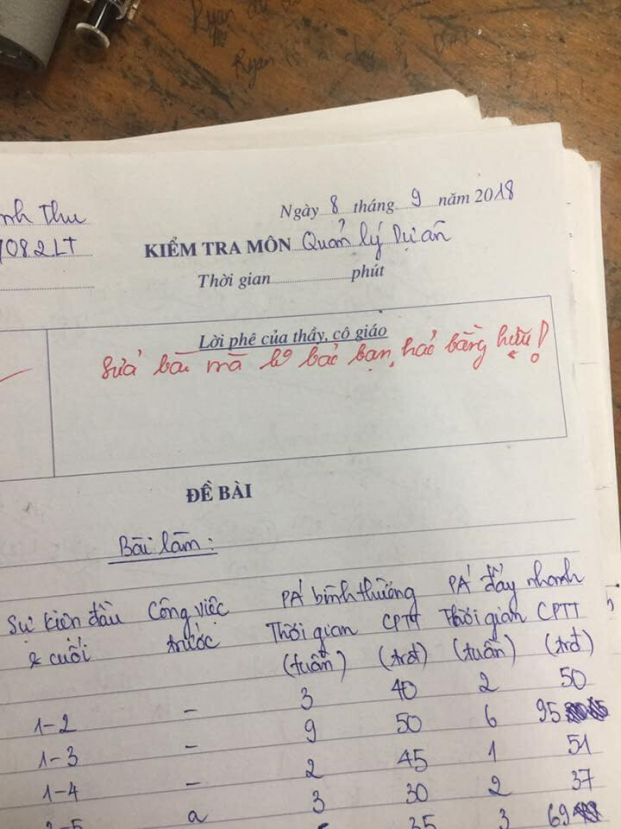 nh Thu
Ngày 8 tháng 9 năm 2018
1082LT
KIỂM TRA MÔN Quản lý Dự án
Thời gian phút
Lời phê của thầy, cô giáo
Sửa bài mà ko bảo bạn, hảo bằng hữu!
ĐỀ BÀI
Bài làm:
Sự kiện đầu & cuối
Công việc trước
PA bình thường
PA đẩy nhanh
Thời gian (tuần)
CPTT (trđ)
Thời gian (tuần)
CPTT (trđ)
1-2 - 3 40 2 50
1-3 - 9 50 6 95
1-4 - 2 45 1 51
a 3 30 2 37
35 3 69